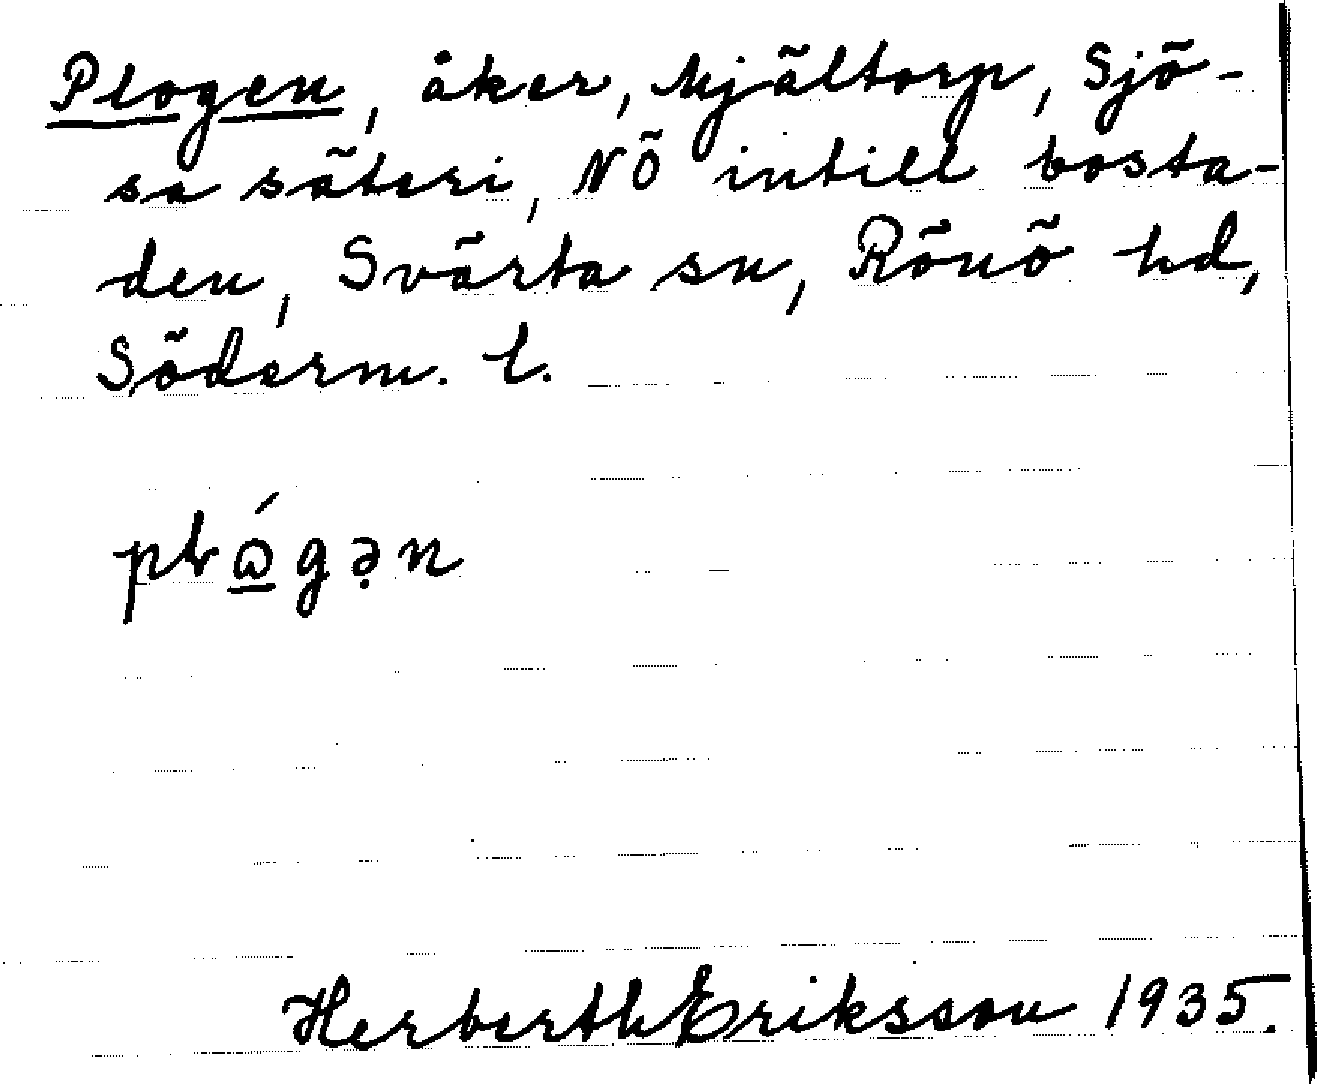 Plogen, åker, Mjältorp, Sjö-
sa säteri, NÖ intill bosta-
den, Svärta sn, Rönö hd,
Söderm. l.
plɷ́gən
Herberth Eriksson 1935.